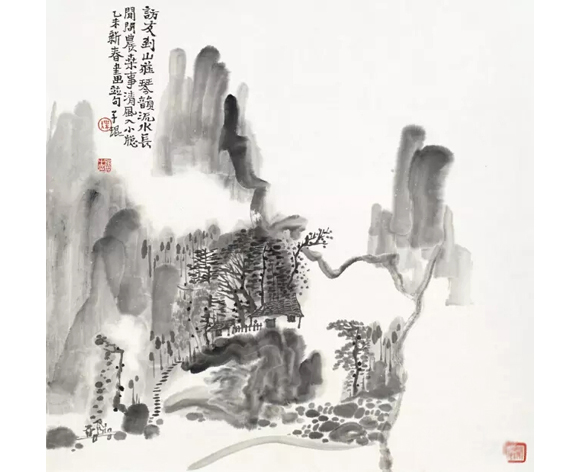 訪友到山莊琴韻流水長
閒問農桑事清風入小窓
乙未新春畫並句子